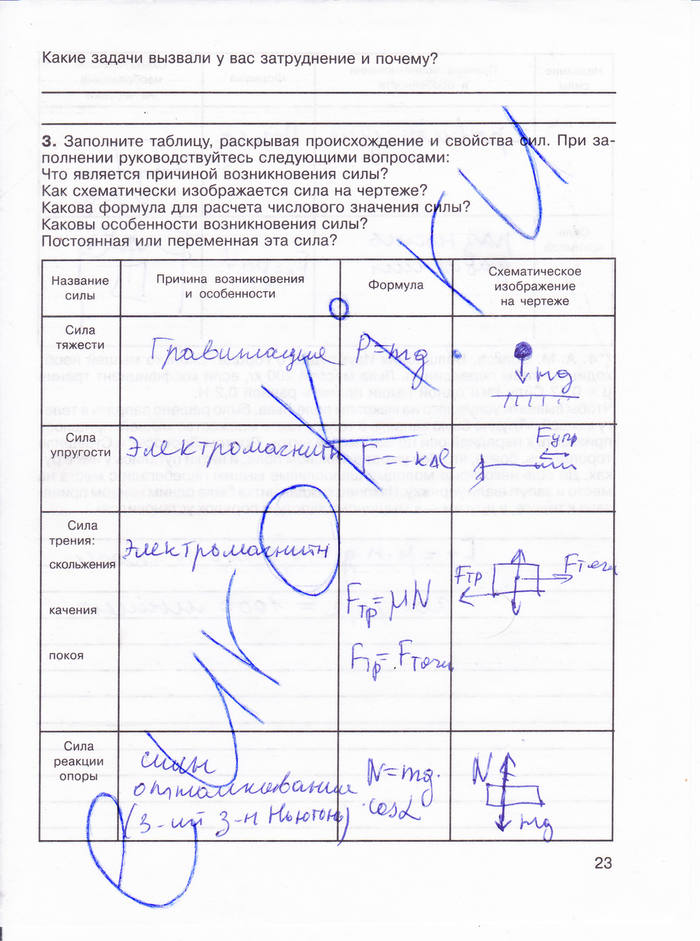 Какие задачи вызвали у вас затруднение и почему?
3. Заполните таблицу, раскрывая происхождение и свойства сил. При за-
полнении руководствуйтесь следующими вопросами:
Что является причиной возникновения силы?
Как схематически изображается сила на чертеже?
Какова формула для расчета числового значения силы?
Каковы особенности возникновения силы?
Постоянная или переменная эта сила?
Название силы
Причина возникновения и особенности
Формула
Схематическое изображение на чертеже
Сила тяжести
Гравитация
P=mg
mg
Сила упругости
Электромагнитн
F=-kΔl
Fупр
Сила трения:
скольжения
Электромагнитн
Fтр
Fтяги
качения
Fтр=μN
покоя
Fтр=Fтяги
Сила реакции опоры
силы
отталкивания
(3-ий з-н Ньютона)
N=mg·
·cosα
N
mg
23